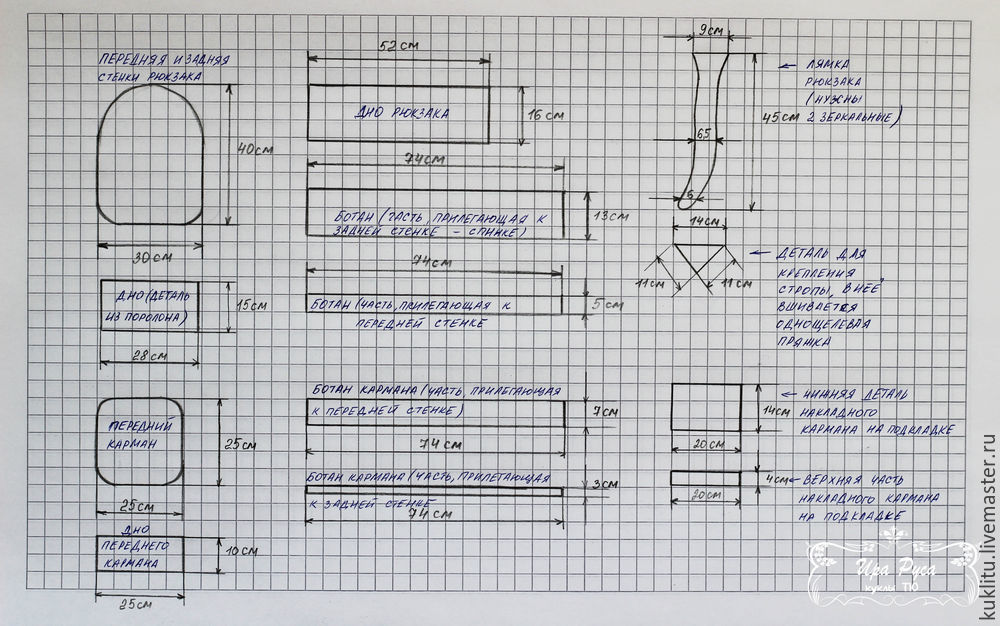 ПЕРЕДНЯЯ И ЗАДНЯЯ
СТЕНКИ РЮКЗАКА
40см
30см
ДНО (ДЕТАЛЬ
ИЗ ПОРОЛОНА)
15см
28см
ПЕРЕДНИЙ
КАРМАН
25см
25см
ДНО
ПЕРЕДНЕГО
КАРМАНА
10см
25см
52см
ДНО РЮКЗАКА
16см
74см
БОТАН (ЧАСТЬ, ПРИЛЕГАЮЩАЯ К
ЗАДНЕЙ СТЕНКЕ - СПИНКЕ)
13см
74см
БОТАН (ЧАСТЬ, ПРИЛЕГАЮЩАЯ К
ПЕРЕДНЕЙ СТЕНКЕ
5см
БОТАН КАРМАНА (ЧАСТЬ, ПРИЛЕГАЮЩАЯ
К ПЕРЕДНЕЙ СТЕНКЕ)
7см
74см
БОТАН КАРМАНА (ЧАСТЬ, ПРИЛЕГАЮЩАЯ
К ЗАДНЕЙ СТЕНКЕ
3см
74см
9см
ЛЯМКА
РЮКЗАКА
(НУЖНЫ
2 ЗЕРКАЛЬНЫЕ)
45см
6,5
5
14см
11см
11см
ДЕТАЛЬ ДЛЯ
КРЕПЛЕНИЯ
СТРОПЫ, В НЕЁ
ВШИВАЕТСЯ
ОДНОЩЕЛЕВАЯ
ПРЯЖКА
14см
20см
НИЖНЯЯ ДЕТАЛЬ
НАКЛАДНОГО
КАРМАНА НА ПОДКЛАДКЕ
4см
20см
ВЕРХНЯЯ ЧАСТЬ
НАКЛАДНОГО КАРМАНА
НА ПОДКЛАДКЕ
Ира Руса
куклы ТЮ
kuklitu.livemaster.ru